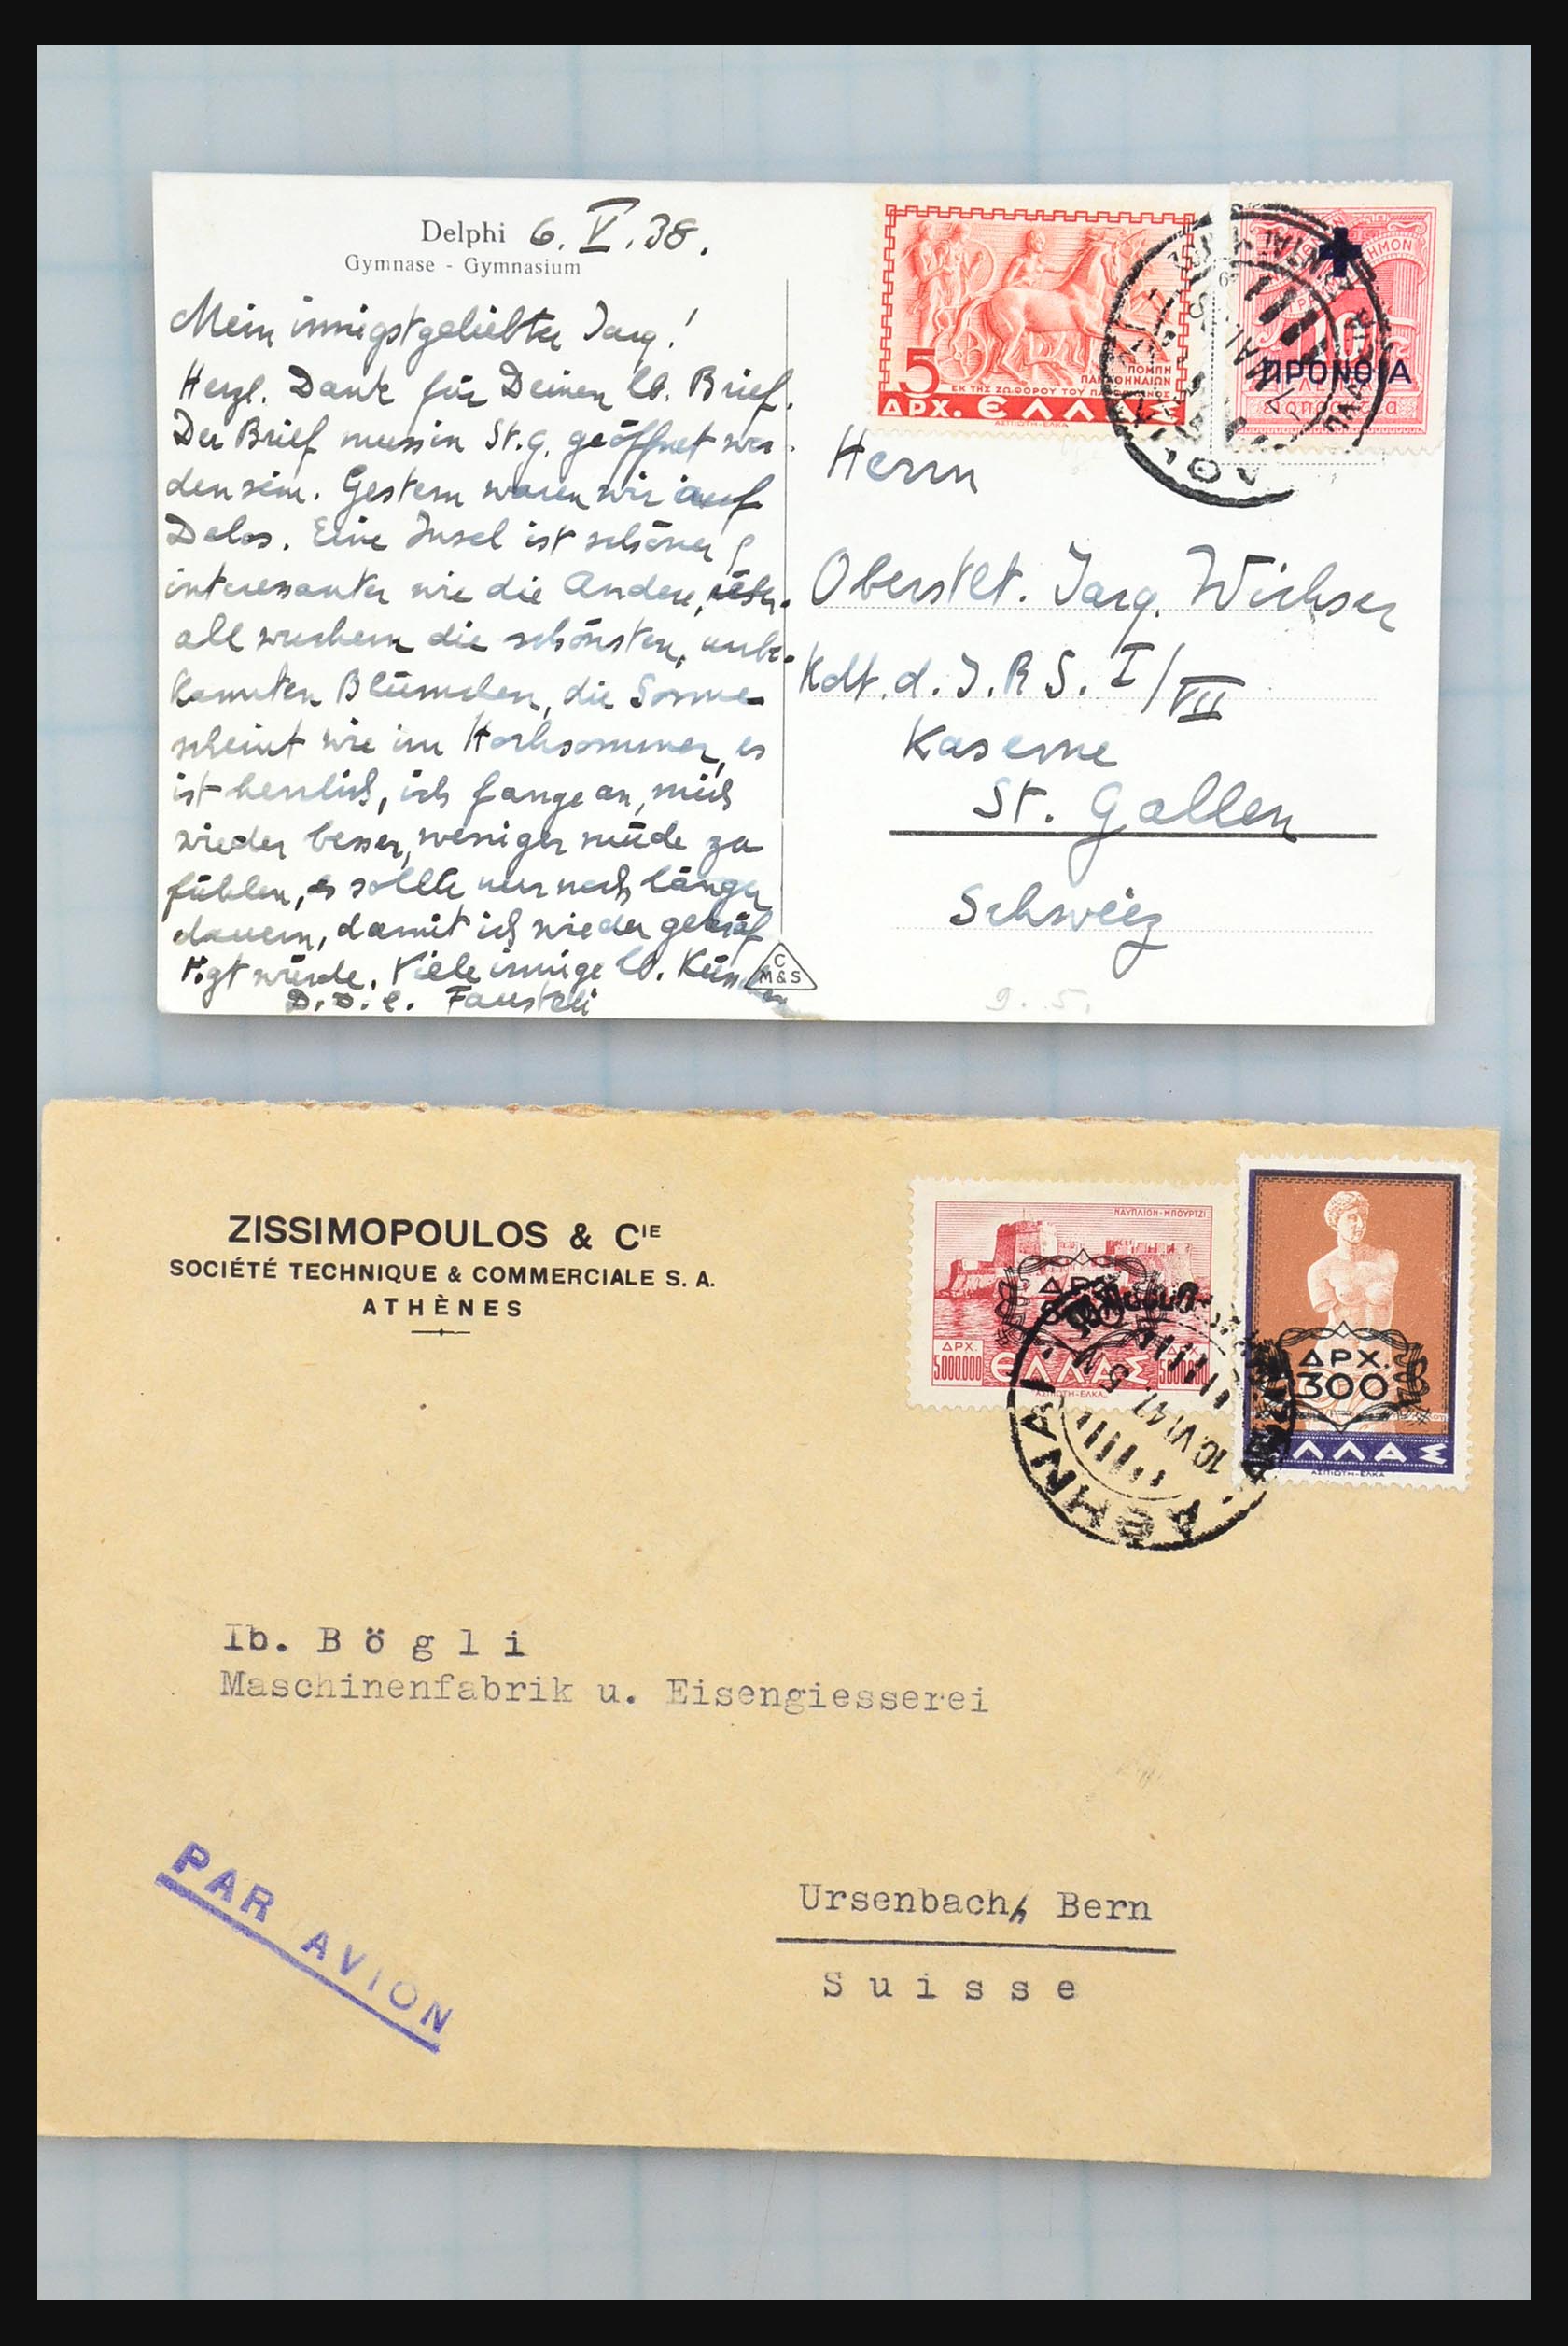 Delphi 6. V. 38.
Gymnase - Gymnasium
Mein innigstgeliebter Jarg!
Herzl. Dank für Deinen lb. Brief.
Der Brief muss in St. G. geöffnet wor-
den sein. Gestern waren wir auf
Delos. Eine Insel ist schöner &
interessanter wie die Andere, über-
all wuchern die schönsten, unbe-
kannten Blümchen, die Sonne
scheint wie im Hochsommer, es
ist herrlich, ich fange an, mich
wieder besser, weniger müde zu
fühlen, es sollte nur noch länger
dauern, damit ich wieder gekräf
tigt würde. Viele innige lb. Küsschen
D. D. l. Fausteli
C
M & S
5
ΔΡΧ. ΕΛΛΑΣ
ΠΟΜΠΗ
ΠΑΝΑΘΗΝΑΙΩΝ
ΕΚ ΤΗΣ ΖΩΦΟΡΟΥ ΤΟΥ
ΑΣΠΙΩΤΗ-ΕΛΚΑ
10
ΠΡΟΝΟΙΑ
Herrn
Oberstlt. Jarg. Wichser
Kdt. d. I. R S. I/VII
Kaserne
St. Gallen
Schweiz
9. 5.
ZISSIMOPOULOS & CIE
SOCIÉTÉ TECHNIQUE & COMMERCIALE S. A.
ATHÈNES
ΝΑΥΠΛΙΟΝ-ΜΠΟΥΡΤΖΙ
ΔΡΧ.
5000000
ΕΛΛΑΣ
ΑΣΠΙΩΤΗ-ΕΛΚΑ
ΔΡΧ.
300
ΛΛΑΣ
ΑΣΠΙΩΤΗ-ΕΛΚΑ
ΑΘΗΝΑΙ
10.VI.47. 5 Μ
Ib. Bögli
Maschinenfabrik u. Eisengiesserei
PAR AVION
Ursenbach/ Bern
Suisse